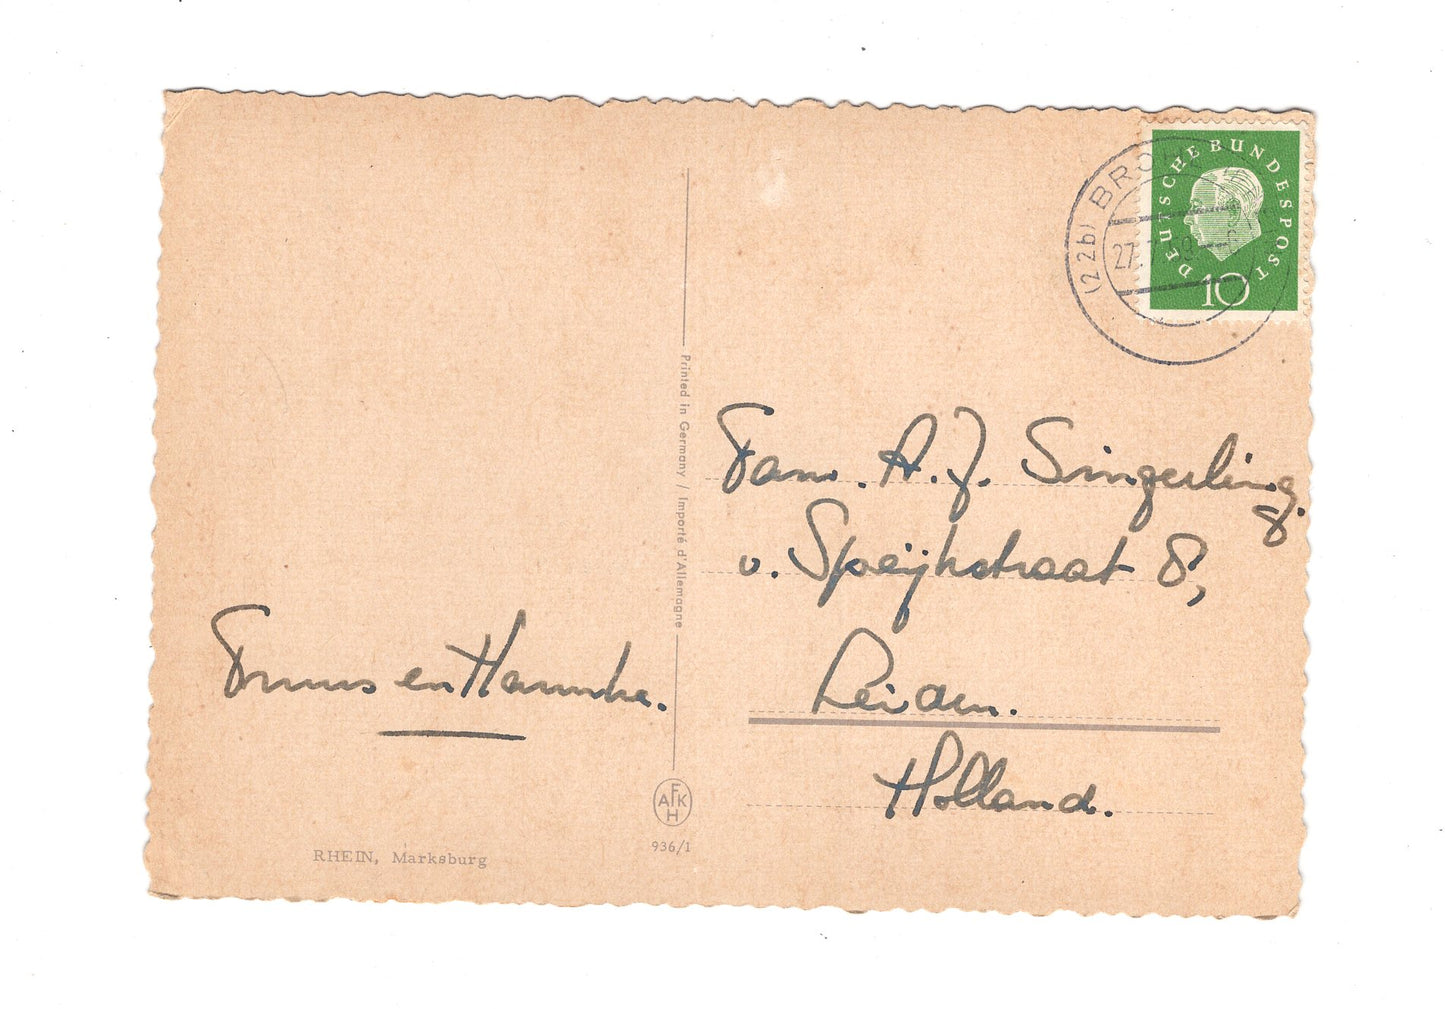 DEUTSCHE BUNDESPOST
10
(22b) BRO
27.7.59
Printed in Germany / Importé d'Allemagne
Fam. A.J. Singerling.
v. Speijkstraat 8,
Leiden.
Holland.
Truus en Hanneke.
AFKH
936/1
RHEIN, Marksburg